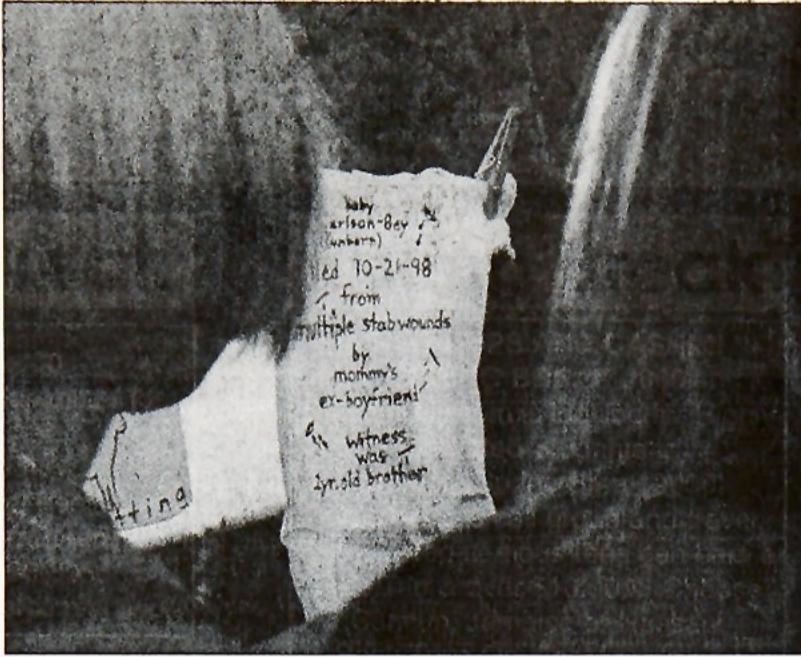 baby
arlson-Bey
(unborn)
ed 10-21-98
from
multiple stabwounds
by
mommy's
ex-boyfriend
witness
was
2yr. old brother
tting